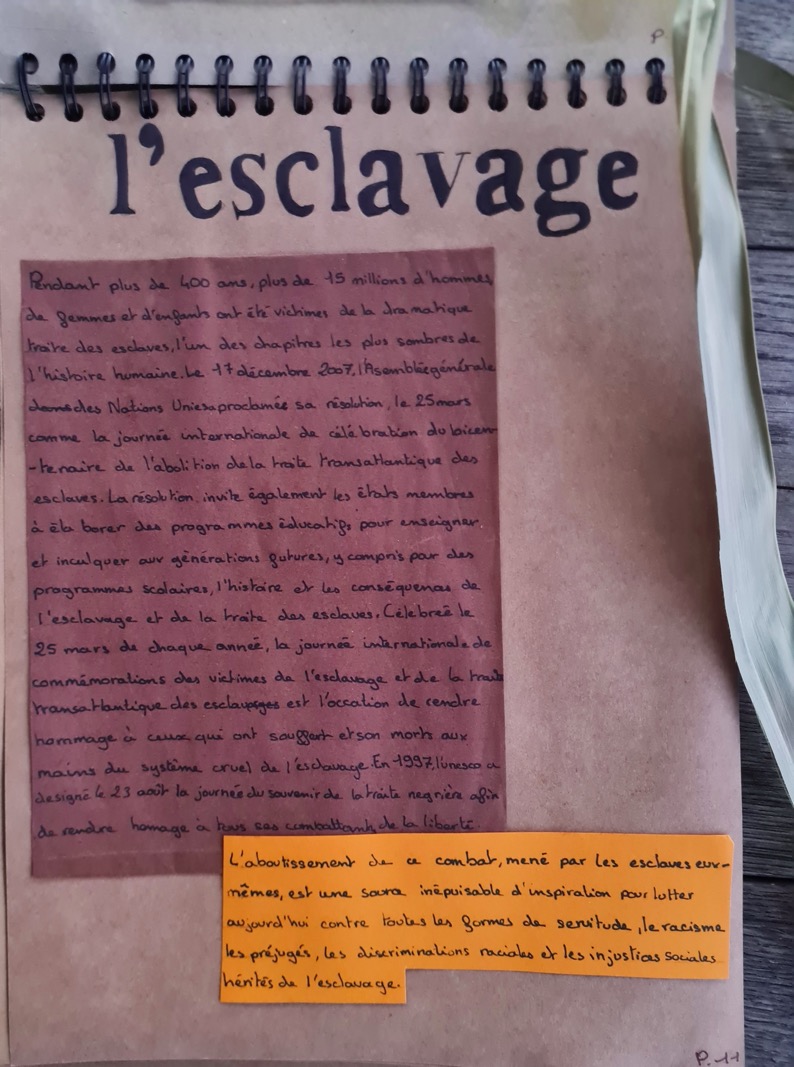 P
l'esclavage
Pendant plus de 400 ans, plus de 15 millions d'hommes,
de femmes et d'enfants ont été victimes de la dramatique
traite des esclaves, l'un des chapitres les plus sombres de
l'histoire humaine. Le 17 décembre 2007, l'Asemblée générale
des Nations Unies a proclamée sa résolution, le 25 mars
comme la journée internationale de célébration du bicen-
-tenaire de l'abolition de la traite transatlantique des
esclaves. La résolution invite également les états membres
à élaborer des programmes éducatifs pour enseigner
et inculquer aux générations futures, y compris par des
programmes scolaires, l'histoire et les conséquences de
l'esclavage et de la traite des esclaves. Célebreé le
25 mars de chaque anneé, la journée internationale de
commémorations des victimes de l'esclavage et de la traite
transatlantique des esclavages est l'occation de rendre
hommage à ceux qui ont souffert et son morts aux
mains du système cruel de l'esclavage. En 1997, l'unesco a
designé le 23 août la journée du souvenir de la traite negrière afin
de rendre homage à tous ses combattants de la liberté.
L'aboutissement de ce combat, mené par les esclaves eux-
mêmes, est une source inépuisable d'inspiration pour lutter
aujourd'hui contre toutes les formes de servitude, le racisme
les préjugés, les discriminations raciales et les injustices sociales
hérités de l'esclavage.
P. 11